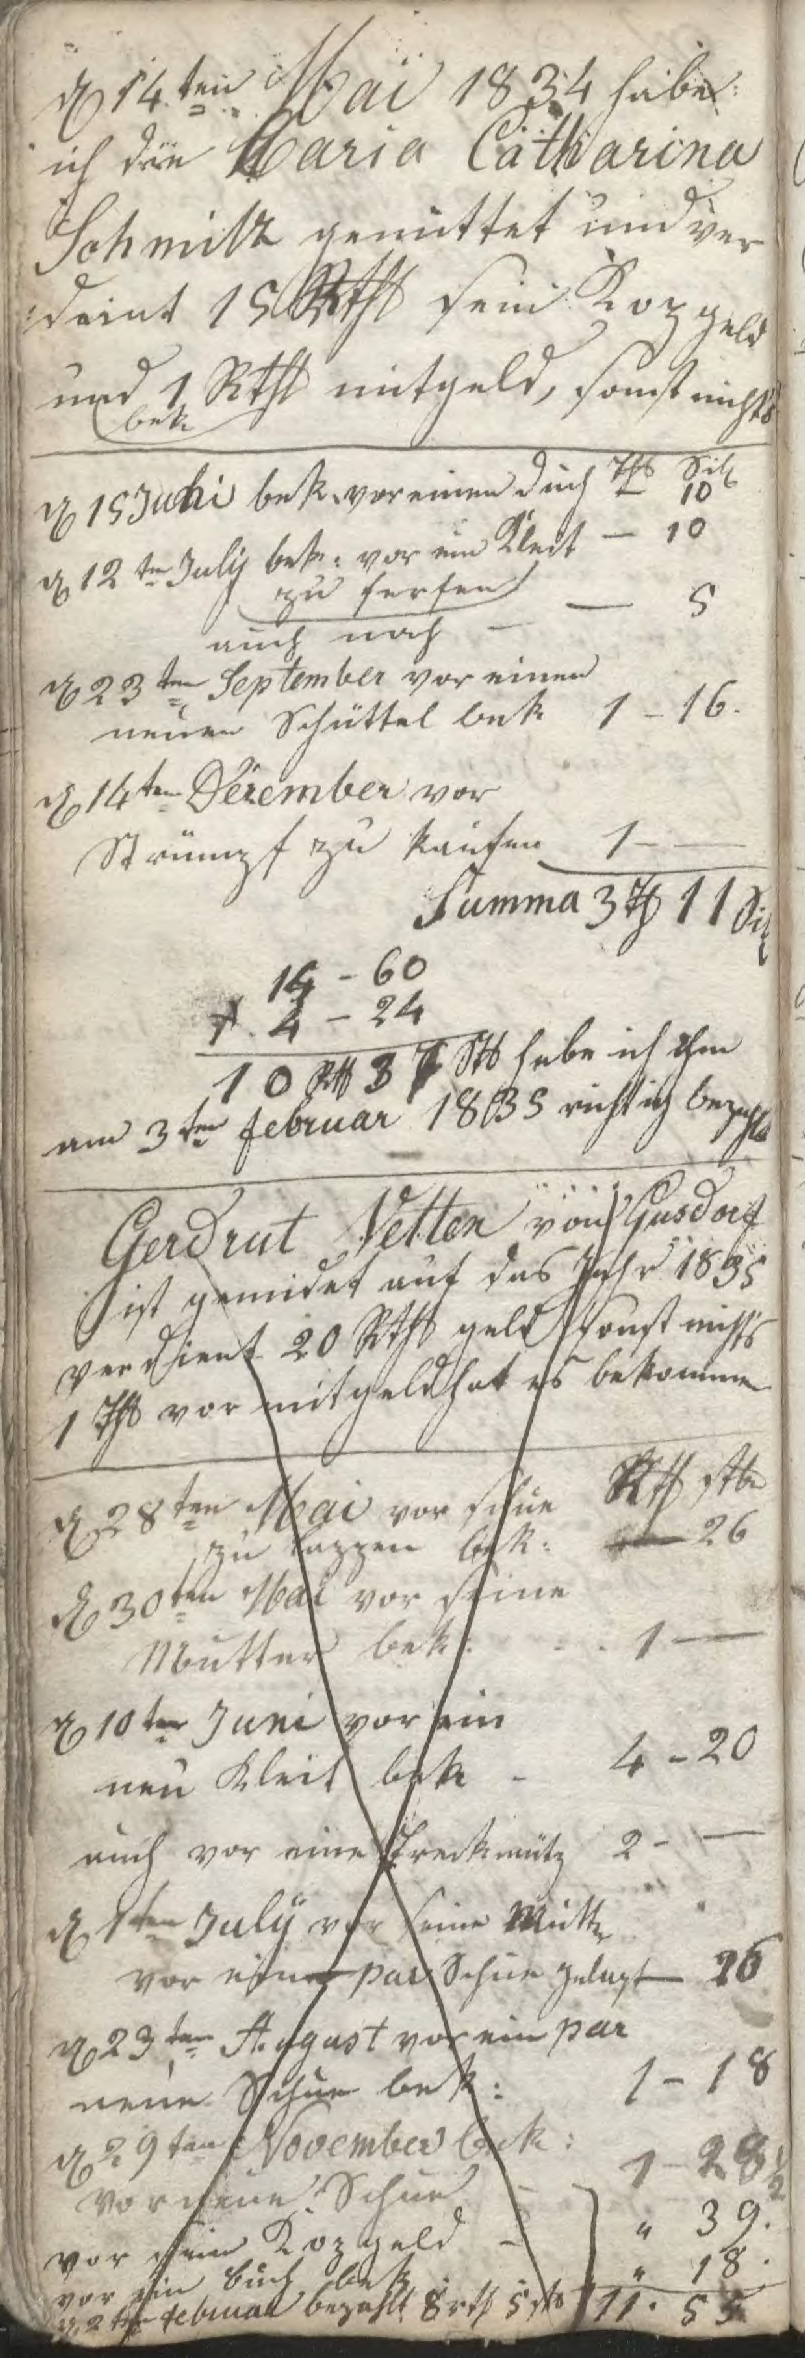 d 14ten Maï 1834 habe
ich die Maria Catharina
Schmitz gemittet und ver
deint 15 Rthl sein Kopgeld
und 1 Rthl mitgeld, sonst nichts
bek
d 15 Juni bek. vor einen duch Thl Sil
10
d 12ten Julÿ bek: vor ein Kleit — 10
zu ferfen
auch noch — — 5
d 23ten September vor einen
neuen Schüttel bek 1 – 16.
d 14ten Dezember vor
Strümpf zu kaufen 1 – —
Summa 3 Th 11 Sil
14 – 60
4 – 24
10 Rth 37 Stb habe ich ihm
am 3ten februar 1835 richtig bezahlt
Gerdrut Vetten von Gusdorf
ist gemidet auf das Jahr 1835
verdient 20 Rthl geld sonst nichts
1 Thl vor mitgeld hat es bekommen
Rth stb
d 28ten Mai vor schue
zu lappen bek: — 26
d 30ten Mai vor seine
Mutter bek: . . 1 —
d 10ten Juni vor ein
neu Kleit bek – 4 – 20
auch vor eine Treckmütz 2 – —
d 1ten Julÿ vor seine Mutter
vor einen par Schue gelapt — 26
d 23ten August vor ein par
neue Schue bek: 1 – 18
d 29ten November bek:
vor neue Schue – 1 – 28 1/2
vor sein Kopgeld – " 39.
vor ein buch bek " 18.
d 2ten februar bezahlt 8 rth 5 stb 11. 55